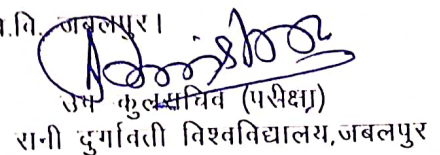 वि. जबलपुर।
उप कुलसचिव (परीक्षा)
रानी दुर्गावती विश्वविद्यालय,जबलपुर